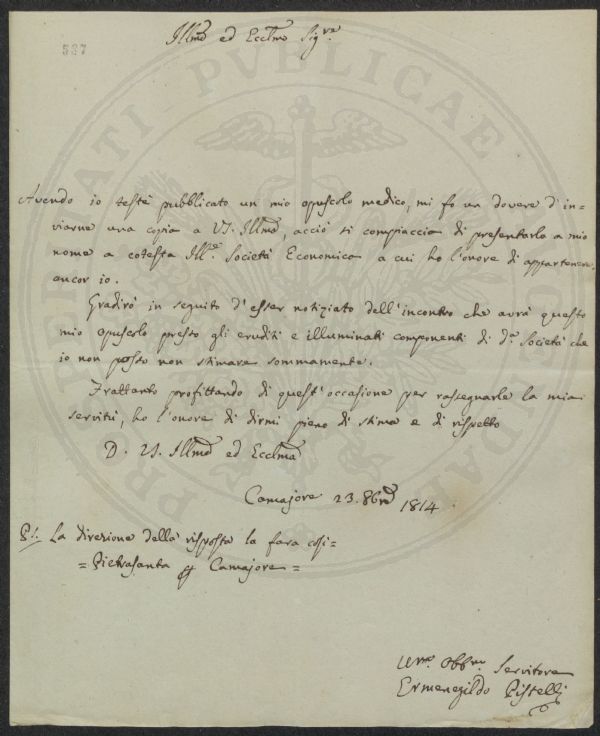 587
Illmo ed Ecclmo Sigre
Avendo io testè pubblicato un mio opuscolo medico, mi fo un dovere d'in-
viarne una copia a VS. Illma, acciò si compiaccia di presentarlo a mio
nome a cotesta Ille Società Economica a cui ho l'onore di appartenere
ancor io.
Gradirò in seguito d'esser notiziato dell'incontro che avrà questo
mio opuscolo presso gli eruditi e illuminati componenti di da Società che
io non posso non stimare sommamente.
Frattanto profittando di quest'occasione per rassegnarle la mia
servitù, ho l'onore di dirmi pieno di stima e di rispetto
D. VS. Illma ed Ecclma
Camajore 23. 8bre 1814
PS. La direzione della risposta la farà così=
= Pietrasanta Camajore=
Umo Obbmo Servitore
Ermenegildo Pistelli
PROSPERITATI PVBLICAE